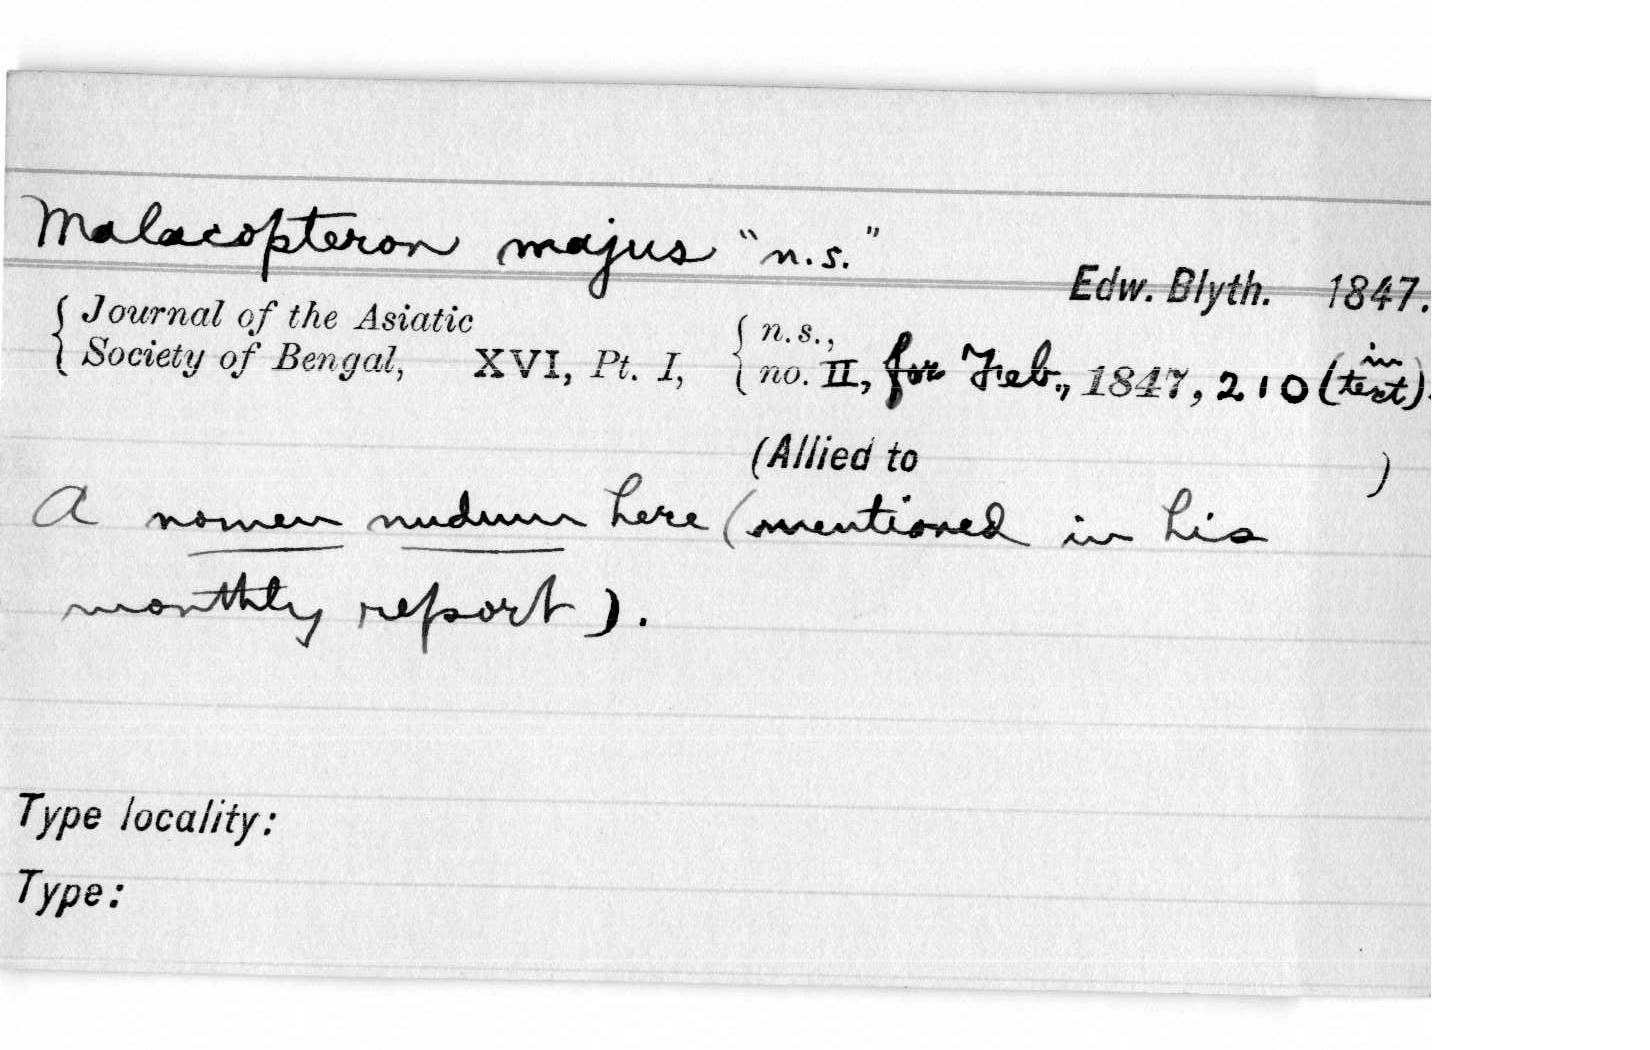 Malacopteron majus "n.s."
Edw. Blyth. 1847.
{ Journal of the Asiatic Society of Bengal, XVI, Pt. I, { n.s., no. II, for Feb., 1847, 210 (in text).
(Allied to )
A nomen nudum here (mentioned in his
monthly report).
Type locality:
Type: